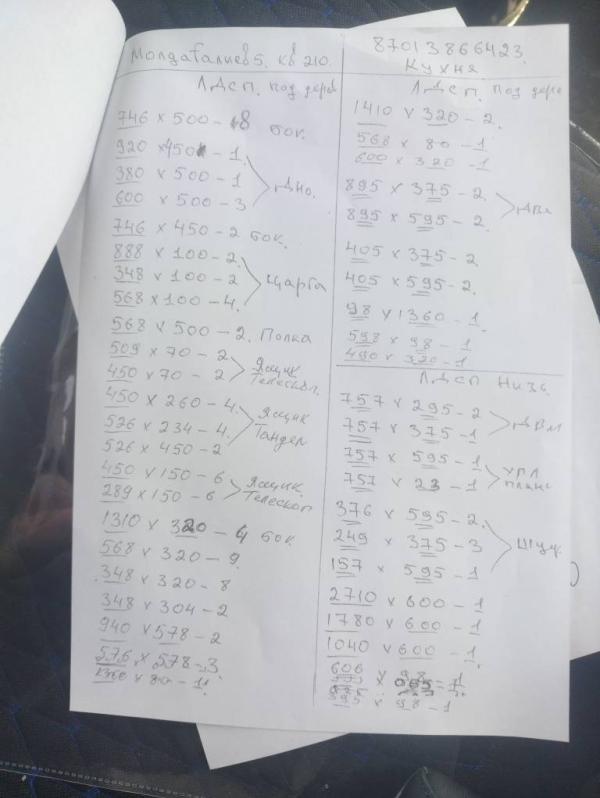 Молдагалиев 5. кв 210.
ЛДСП. под дерев
746 x 500 - 8 бок.
920 x 450 - 1.
380 x 500 - 1
600 x 500 - 3
Дно.
746 x 450 - 2 бок.
888 x 100 - 2.
348 x 100 - 2
568 x 100 - 4.
Царга
568 x 500 - 2. Полка
509 x 70 - 2
450 x 70 - 2
Ящик Телескоп.
450 x 260 - 4.
526 x 234 - 4.
Ящик Тандем
526 x 450 - 2
450 x 150 - 6
289 x 150 - 6
Ящик. Телескоп
1310 x 320 - 4 бок.
568 x 320 - 9.
348 x 320 - 8
348 x 304 - 2
940 x 578 - 2
576 x 578 - 3
87013866423.
Кухня.
ЛДСП. под дере
1410 x 320 - 2.
568 x 80 - 1
600 x 320 - 1
895 x 375 - 2.
895 x 595 - 2.
405 x 375 - 2
405 x 595 - 2.
98 x 1360 - 1.
598 x 98 - 1.
490 x 320 - 1
ЛДСП Низ.
757 x 295 - 2
757 x 375 - 1
ДВМ
757 x 595 - 1
757 x 23 - 1
планк
376 x 595 - 2.
249 x 375 - 3
157 x 595 - 1
2710 x 600 - 1
1780 x 600 - 1.
1040 x 600 - 1.
606 x 98 - 1
395 x 98 - 1